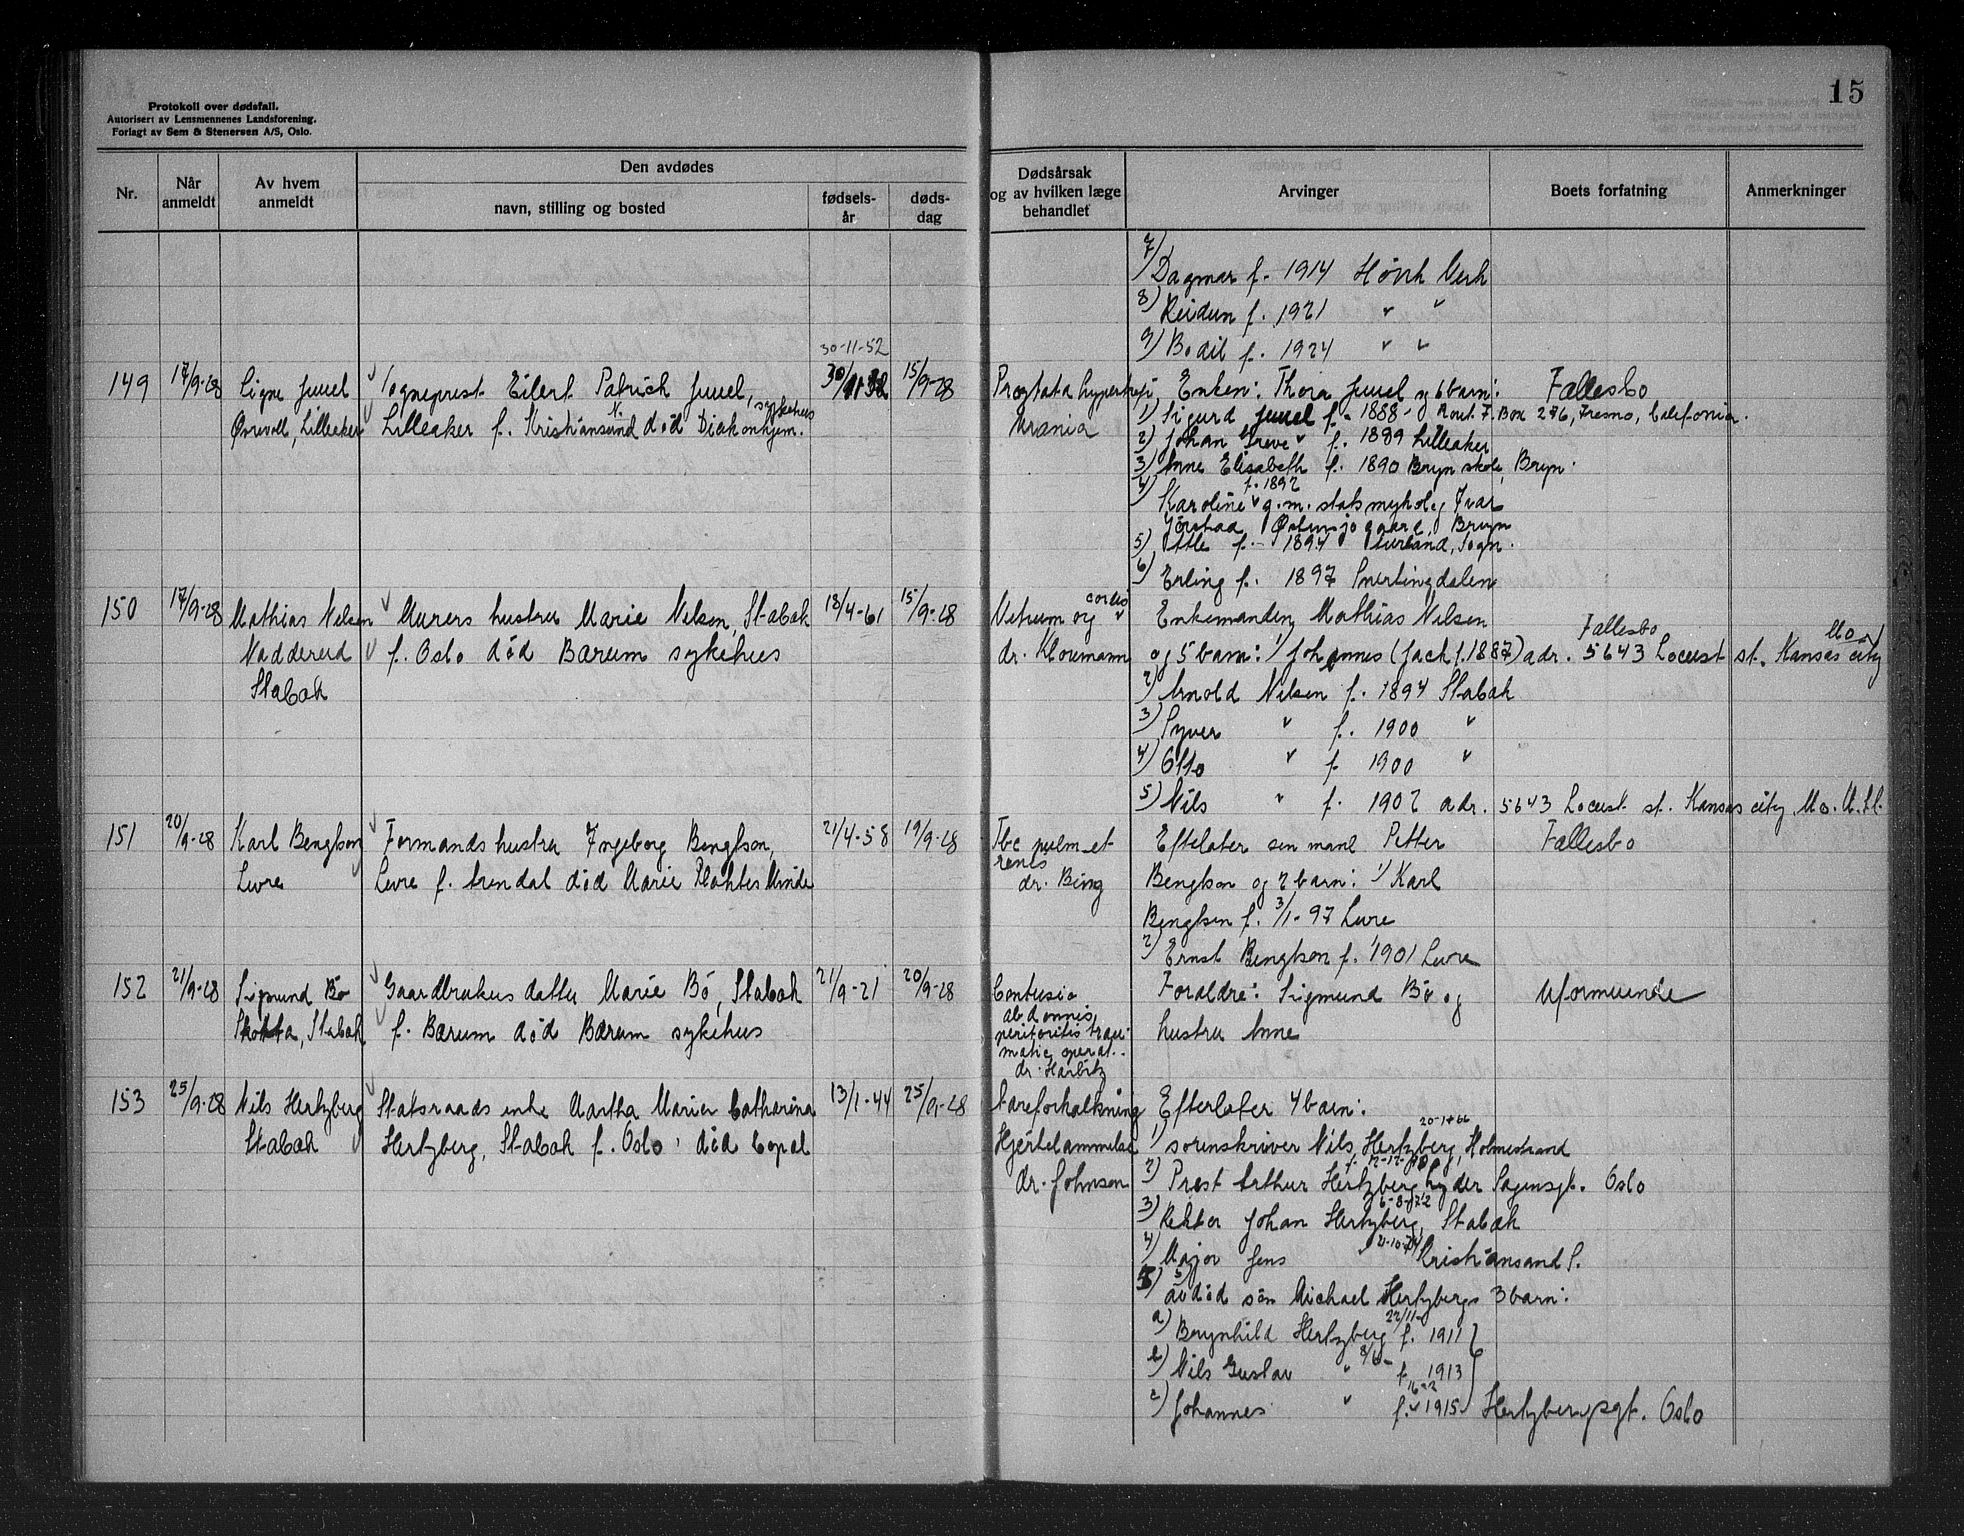 Protokoll over dødsfall.
Autorisert av Lensmennenes Landsforening.
Forlagt av Sem & Stenersen A/S, Oslo.
15
Nr.
Når anmeldt
Av hvem anmeldt
Den avdødes
navn, stilling og bosted
fødsels-år
døds-dag
Dødsårsak og av hvilken læge behandlet
Arvinger
Boets forfatning
Anmerkninger
7) Dagmar f. 1914 Hønk Verk
8) Reidun f. 1921 " "
9) Bodil f. 1924 " "
30-11-52
149 17/9-28 Signe Juuel Sogneprest Eilert Patrick Juuel, 15/9-28 Prostata hypertrofi Enken: Thora Juuel og 6 barn: Fællesbo
Lilleaker Lilleaker f. Kristiansund N. død Diakonhjem. sykehus Urænia 1) Sigurd Juuel f. 1888 - Rout 7. Box 276, Fresno, Califonia.
2) Johan Greve " f. 1889 Lilleaker
3) Anne Elisabeth f. 1890 Bryn skole, Bryn.
4) Karoline f. 1892 g.m. Ivar
Bryn
5) Atle f. 1894 Aurland, Sogn.
6) Erling f. 1897 Snertingdalen
150 17/9-28 Mathias Nilsen Murers hustru Marie Nilsen, Stabæk 18/4-61 15/9-28 Vitium cordis og Enkemanden Mathias Nilsen Fællesbo
Nadderud f. Oslo død Bærum sykehus dr. Kloumann og 5 barn: 1) Johannes (Jack f. 1887) adr. 5643 Locust st. Kansas city Mo
Stabæk 2) Arnold Nilsen f. 1894 Stabæk
3) Syver " f. 1900 "
4) Otto " f. 1900 "
5) Nils " f. 1902 adr. 5643 Locust st. Kansas city, Mo. U.S.A.
151 20/9-28 Karl Bengtson Formands hustru Ingeborg Bengtson, 21/4-58 19/9-28 Tbc pulm et renis Efterlater sin mand Petter Fællesbo
Levre Levre f. Arendal død Marie Plahtes Minde dr. Bing Bengtson og 2 barn: 1) Karl
Bengtson f. 3/1-97 Levre
2) Ernst Bengtson f. 1901 Levre
152 21/9-28 Sigmund Bö Gaardbrukers datter Marie Bö, Stabæk 21/9-21 20/9-28 Contusio Foraldre: Sigmund Bö og Uformuende
Skotta, Stabæk f. Bærum død Bærum sykehus abdomis, hustru Anne
peritoritis trau-
matic, operat.
dr. Harbitz
153 25/9-28 Nils Hertzberg Statsraads enke Martha Marie Catharina 13/1-44 25/9-28 Aareforkalkning Efterlater 4 barn:
Stabæk Hertzberg, Stabæk f. Oslo, død Hjertelammelse 1) sorenskriver Nils Hertzberg, Holmestrand
dr. Johnson 2) Prest Arthur Hertzberg Sagensgt. Oslo
3) Rektor Johan Hertzberg, 6-8-72 Stabæk
4) Major Jens " 21-10-74 Kristiansand S.
5) avdöd sön Michael Hertzbergs 3 barn:
a) Brynhild Hertzberg f. 22/11- 1911
b) Nils Gustav " 8/6- f. 1913
c) Johannes " f. 16-2 1915 Hertzbergsgt. Oslo